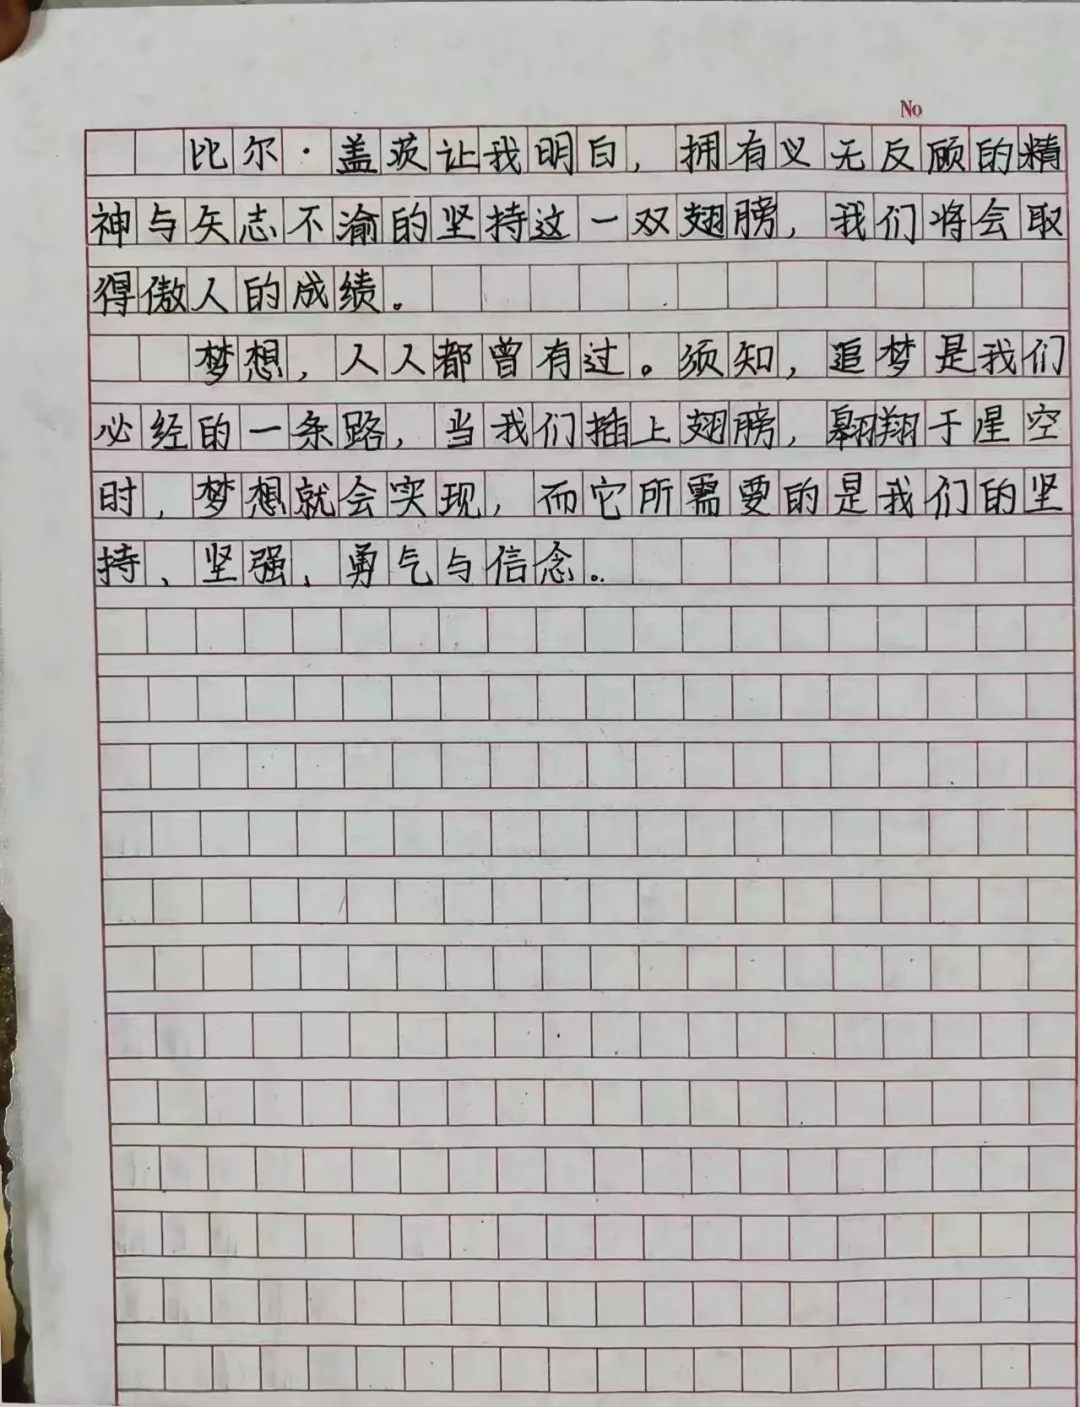 No
比尔·盖茨让我明白，拥有义无反顾的精
神与矢志不渝的坚持这一双翅膀，我们将会取
得傲人的成绩。
梦想，人人都曾有过。须知，追梦是我们
必经的一条路，当我们插上翅膀，翱翔于星空
时，梦想就会实现，而它所需要的是我们的坚
持、坚强、勇气与信念。